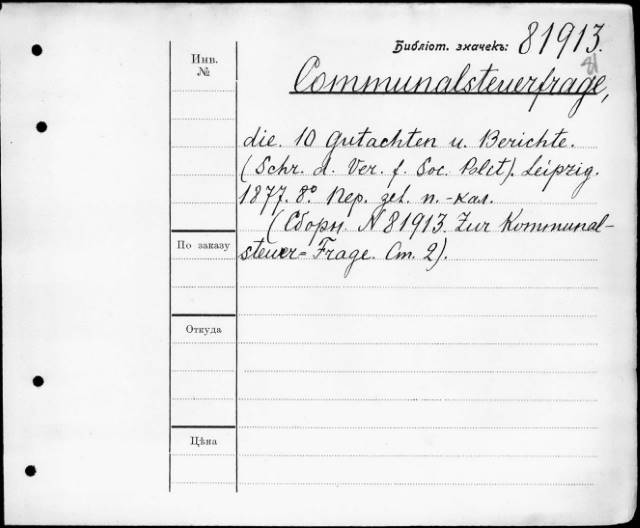 Библіот. значекъ: 81913.
81
Инв.
№
Communalsteuerfrage,
die. 10 Gutachten u. Berichte.
(Schr. d. Ver. f. Soc. Polit). Leipzig.
1877. 8º. Пер. zet. п.-кал.
(Сборн. N 81913. Zur Kommunal-
steuer=Frage. Ст. 2).
По заказу
Откуда
Цѣна